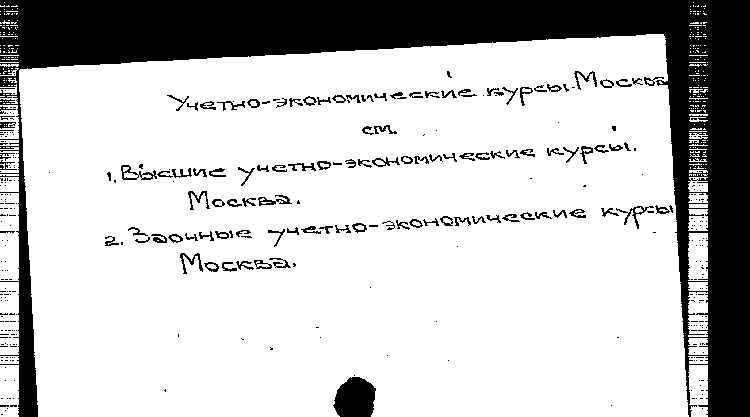 Учетно-экономические курсы. Москва
см.
1. Высшие учетно-экономические курсы.
Москва.
2. Заочные учетно-экономические курсы
Москва.